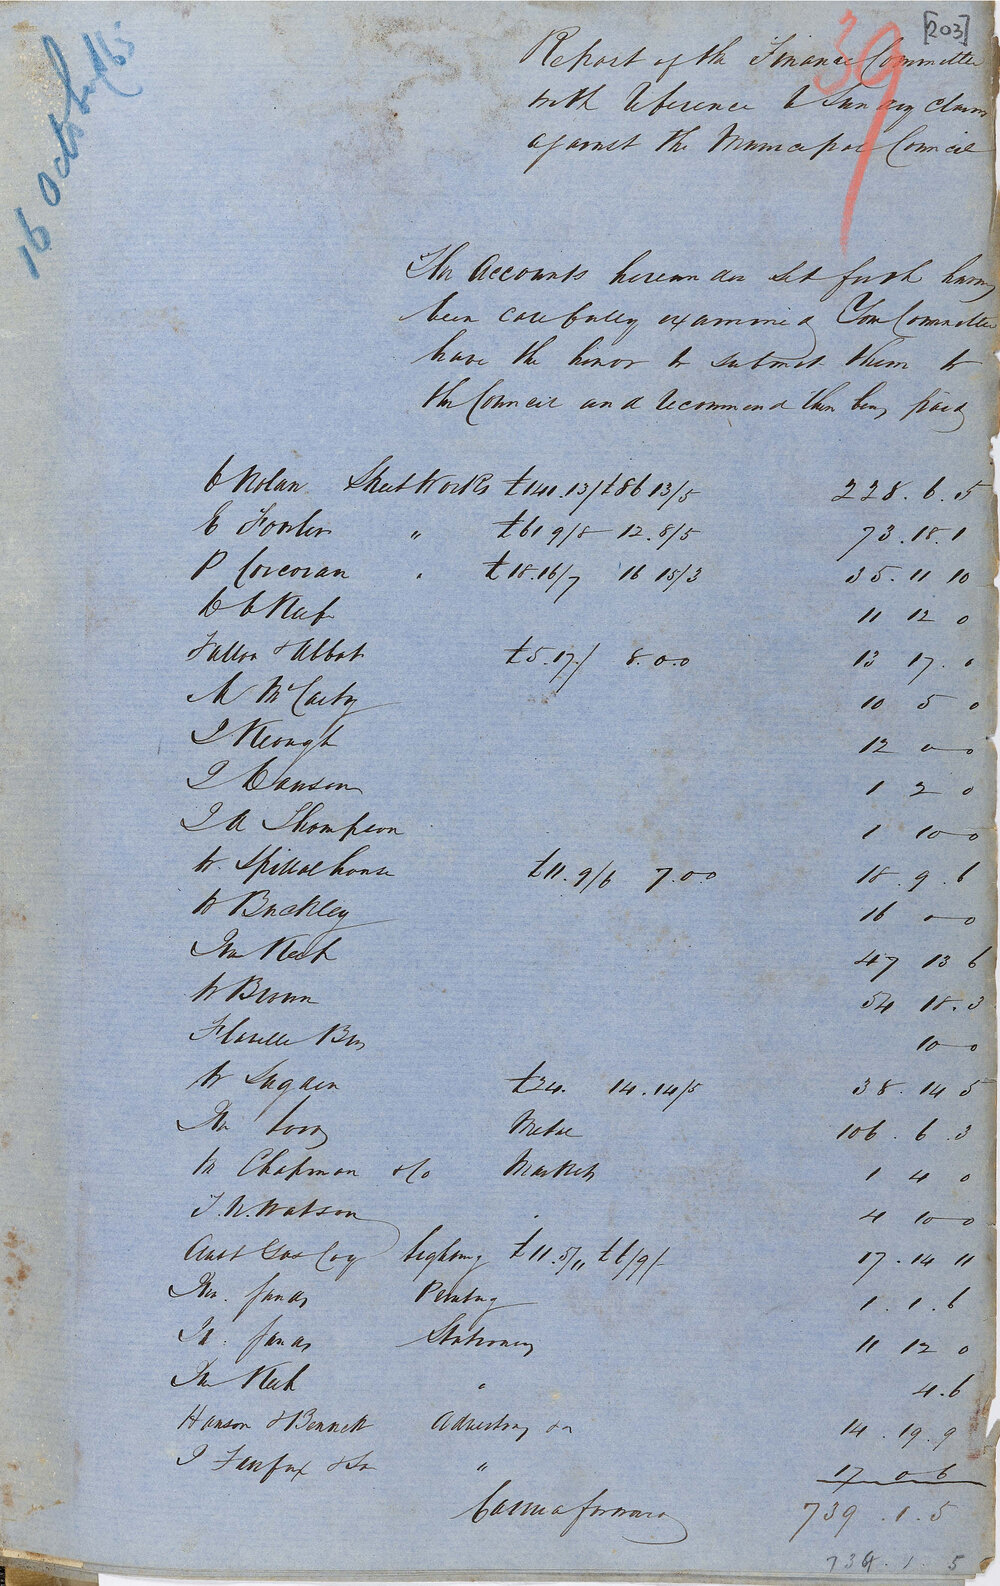 [203]
39
16 October/65
Report of the Finance Committee
with reference to Sundry claims
against the Municipal Council
The Accounts hereunder set forth having
been carefully examined Your Committee
have the honor to submit them to
the Council and recommend their being paid
C Nolan Street Works £141.13/ £86 13/5 228.6.5
E Fowler " £61 9/8 12.8/5 73.18.1
P Corcoran " £18.16/7 16 15/3 35.11 10
11 12 0
Fallon & Abbot £5.17/ 8.0.0 13 17.0
M McCarty 10 5 0
J Keough 12 0 0
J Dawson 1 2 0
J A Thompson 1 10 0
W. Spittalhouse £11.9/6 7.0.0 18.9.6
W Buckley 16 0 0
Jno Keep 47 13 6
W Brown 54 18.3
Flavelle Bros 10 0
W Sugden £24. 14.14/5 38.14 5
Jno Metal 106.6.3
M Chapman & Co Markets 1 4 0
J. W. Watson 4 10 0
Aust Gas Coy Lighting £11.5/11 £6/9/- 17.14 11
Jno. Sands Printing 1.1.6
Jn. Sands Stationery 11 12 0
Jno Keep " 4.6
Hanson & Bennett Advertising &c 14.19.9
J Fairfax & Son " 17 0 6
Carried forward 739.1.5
739.1.5